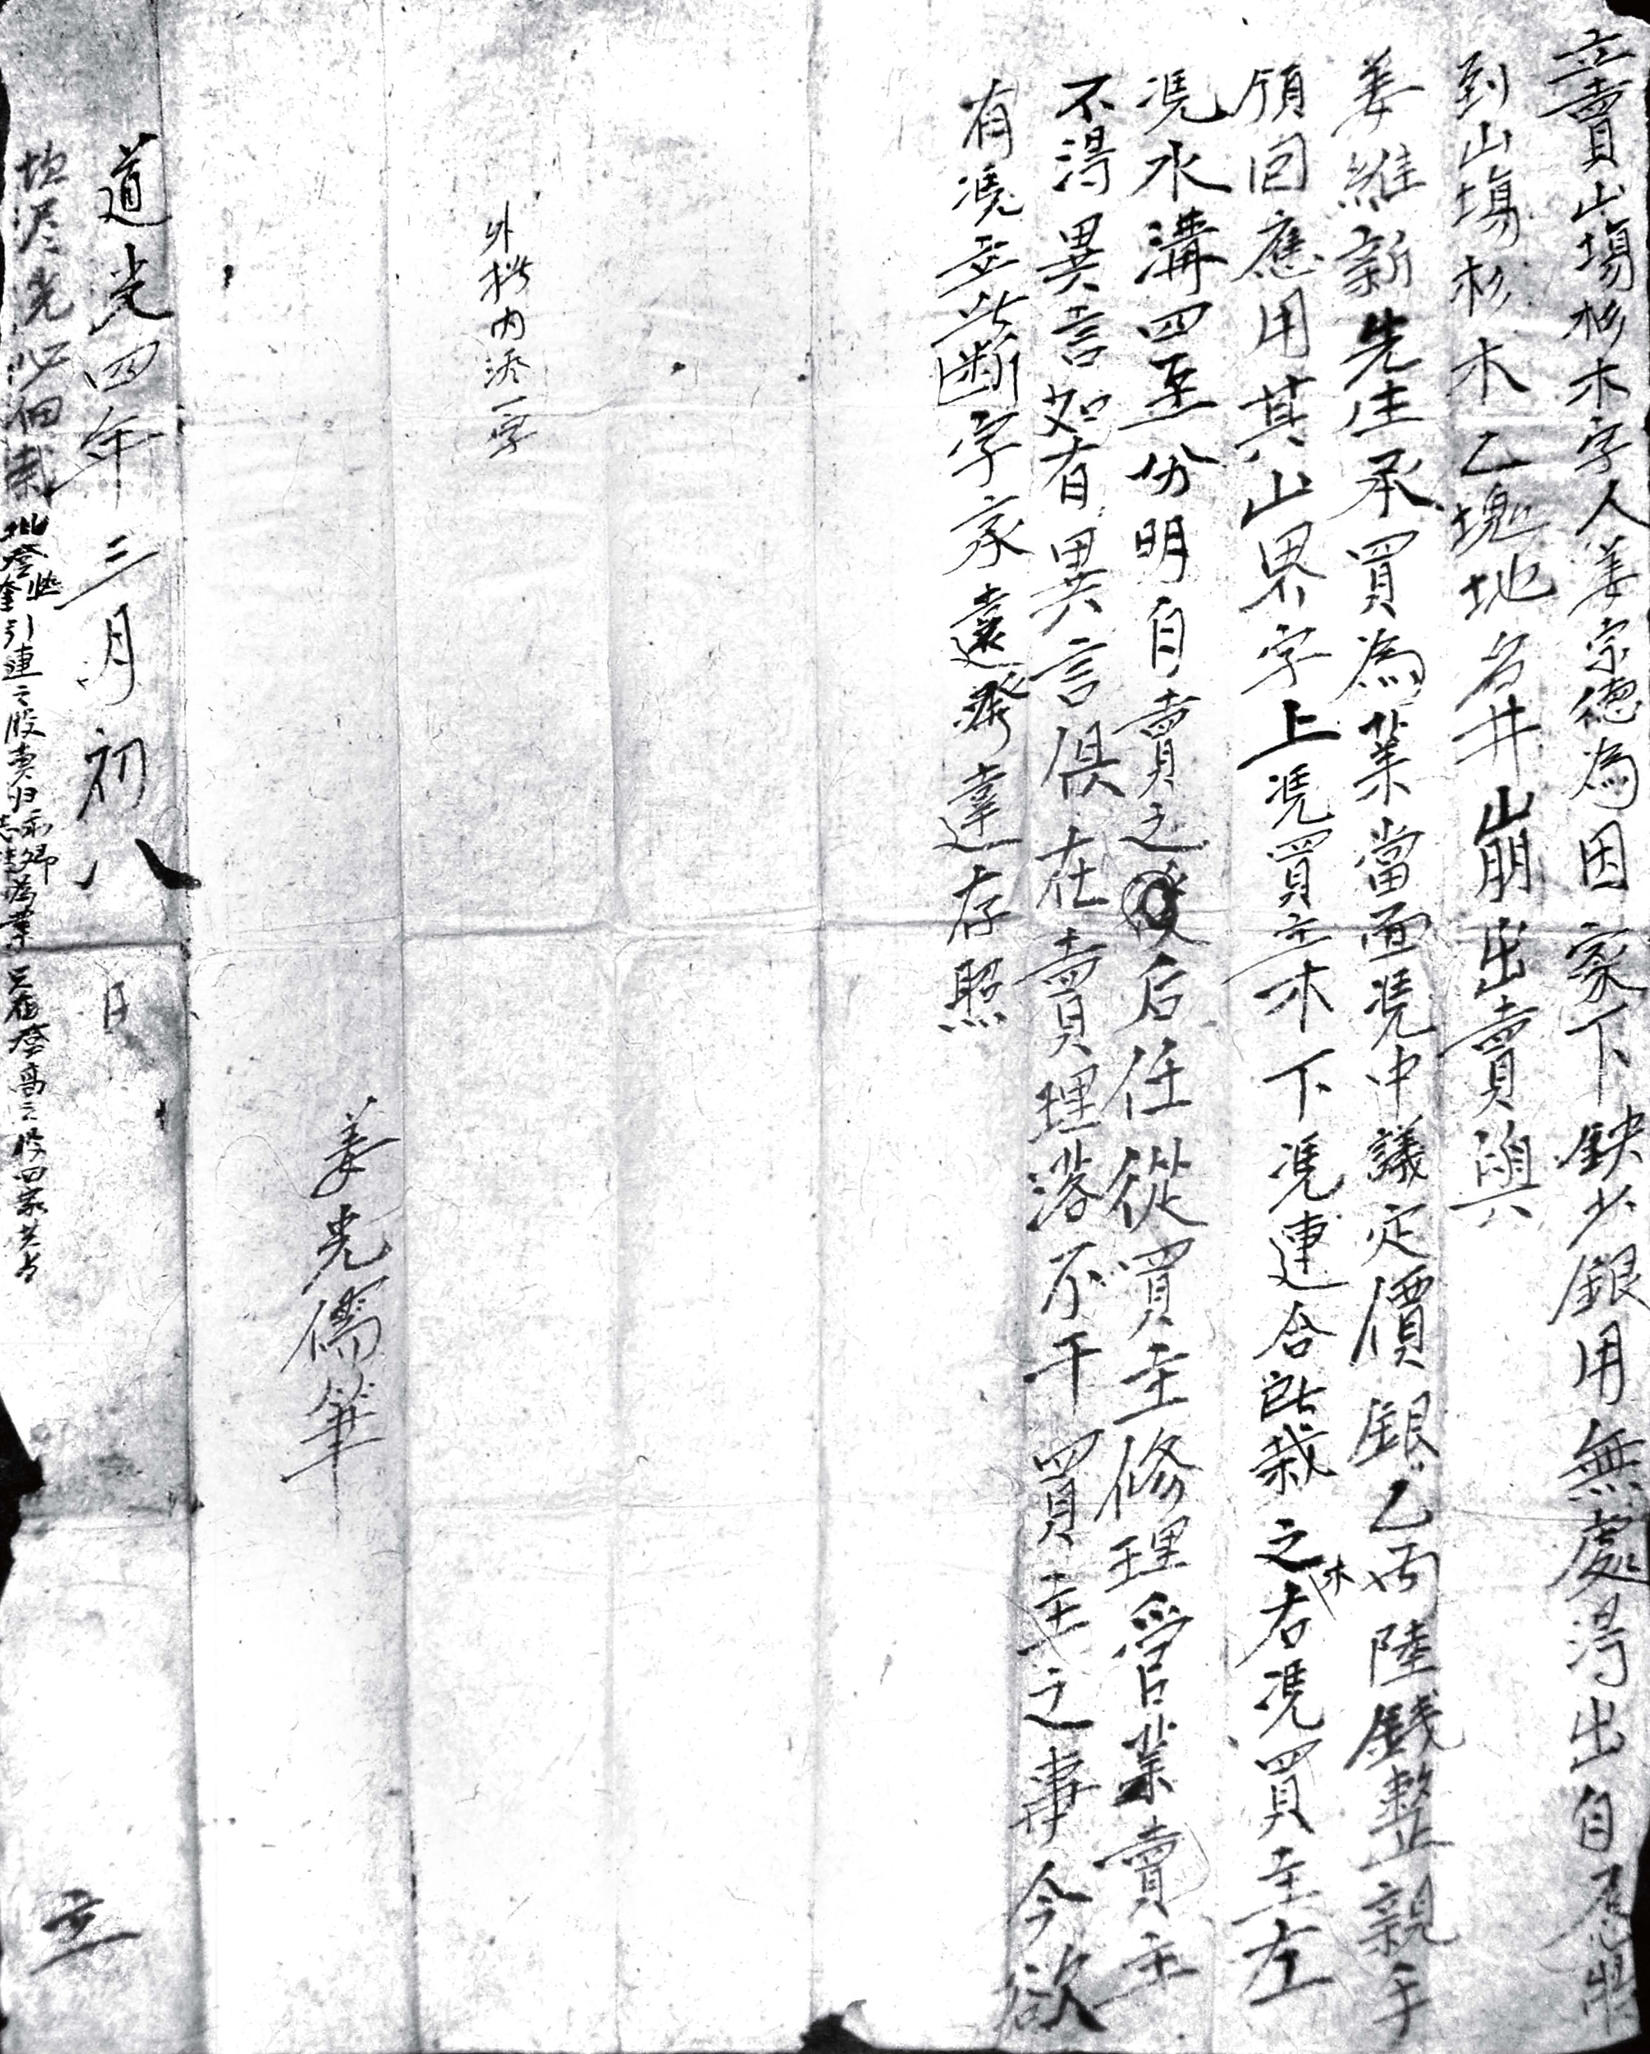 立賣山塲杉木字人姜宗德為因家下缺少銀用無處淂出自愿將
到山塲杉木乙塊地名井山崩出賣與
姜維新先生承買為業當面凴中議定價銀乙両陸錢整親手
領回應用其山界字上凴買主木下凴連合所栽之木右凴買主左
凴水溝四至分明自賣之後后任從買主修理管業賣主
不淂異言如有異言俱在賣理落不干買主之事今欲
有凴立此断字家遠發達存照
外批内添一字
姜光儒筆
道光四年三月初八日立